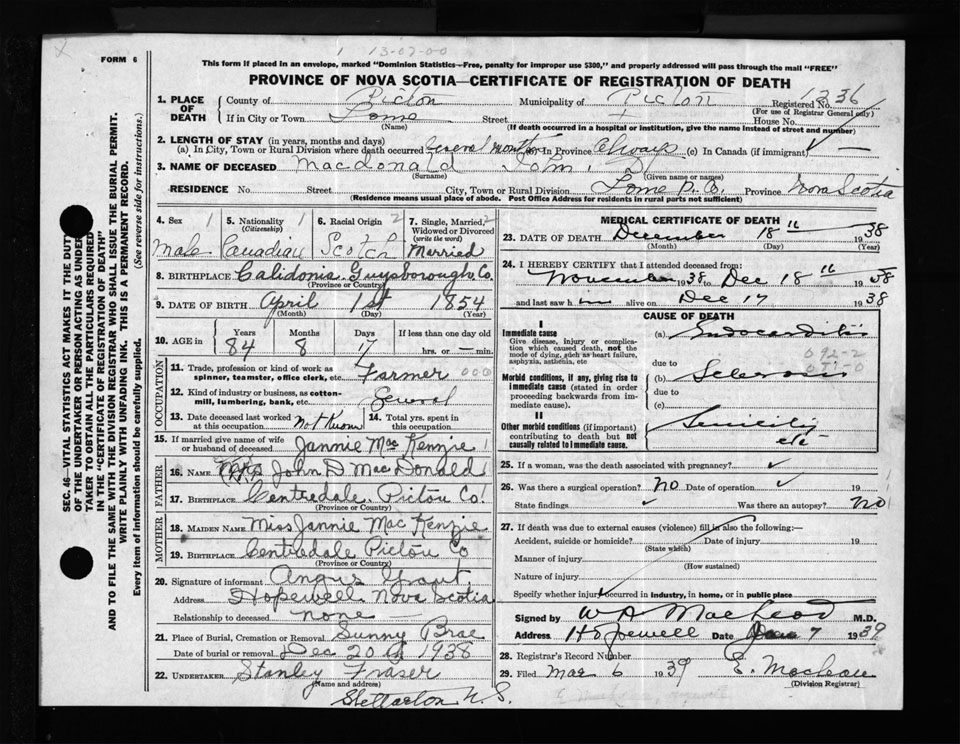 X
FORM 6
1 13-07-00
This form if placed in an envelope, marked "Dominion Statistics—Free, penalty for improper use $300," and properly addressed will pass through the mail "FREE"
PROVINCE OF NOVA SCOTIA—CERTIFICATE OF REGISTRATION OF DEATH
SEC. 46—VITAL STATISTICS ACT MAKES IT THE DUTY OF THE UNDERTAKER OR PERSON ACTING AS UNDERTAKER TO OBTAIN ALL THE PARTICULARS REQUIRED IN THE "CERTIFICATE OF REGISTRATION OF DEATH" AND TO FILE THE SAME WITH THE DIVISION REGISTRAR WHO SHALL ISSUE THE BURIAL PERMIT.
WRITE PLAINLY WITH UNFADING INK. THIS IS A PERMANENT RECORD.
Every item of information should be carefully supplied. (See reverse side for instructions.)
1. PLACE OF DEATH County of Pictou Municipality of Pictou Registered No. 1236
(For use of Registrar General only)
If in City or Town Lorne Street House No.
(Name) (If death occurred in a hospital or institution, give the name instead of street and number)
2. LENGTH OF STAY (in years, months and days)
(a) In City, Town or Rural Division where death occurred Several months (b) In Province Always (c) In Canada (if immigrant) —
3. NAME OF DECEASED Macdonald John. D.
(Surname) (Given name or names)
RESIDENCE No. Street City, Town or Rural Division Lorne P. O. Province Nova Scotia
(Residence means usual place of abode. Post Office Address for residents in rural parts not sufficient)
4. Sex 1 Male
5. Nationality 1 (Citizenship) Canadian
6. Racial Origin 2 Scotch
7. Single, Married, Widowed or Divorced 2 (write the word) Married
8. BIRTHPLACE Calidonia Guysborough Co.
(Province or Country)
9. DATE OF BIRTH April 1st 1854
(Month) (Day) (Year)
10. AGE in Years 84 Months 8 Days 17 If less than one day old hrs. or — min.
OCCUPATION
11. Trade, profession or kind of work as spinner, teamster, office clerk, etc. Farmer 000
12. Kind of industry or business, as cotton-mill, lumbering, bank, etc. General
13. Date deceased last worked at this occupation Not Known 14. Total yrs. spent in this occupation
15. If married give name of wife or husband of deceased Jannie MacKenzie 1
FATHER
16. NAME John D. MacDonald
17. BIRTHPLACE Centredale. Pictou Co.
(Province or Country)
MOTHER
18. MAIDEN NAME Miss Jannie MacKenzie
19. BIRTHPLACE Centredale Pictou Co
(Province or Country)
20. Signature of informant Angus Grant
Address Hopewell Nova Scotia
Relationship to deceased none
21. Place of Burial, Cremation or Removal Sunny Brae
Date of burial or removal Dec 20th 1938
22. UNDERTAKER Stanley Fraser
(Name and address)
Stellarton N.S.
MEDICAL CERTIFICATE OF DEATH
23. DATE OF DEATH December 18th 1938
(Month) (Day) (Year)
24. I HEREBY CERTIFY that I attended deceased from:
November 1938 to Dec 18th 1938
and last saw h im alive on Dec 17 1938
CAUSE OF DEATH
I
Immediate cause
Give disease, injury or complication which caused death, not the mode of dying, such as heart failure, asphyxia, asthenia, etc
(a) Endocarditis
092-2
due to
Morbid conditions, if any, giving rise to immediate cause (stated in order proceeding backwards from immediate cause).
(b) Sclerosis
due to
(c)
II
Other morbid conditions (if important) contributing to death but not causally related to immediate cause.
Senility
etc
25. If a woman, was the death associated with pregnancy?
26. Was there a surgical operation? NO Date of operation 19
State findings Was there an autopsy? NO
27. If death was due to external causes (violence) fill in also the following:—
Accident, suicide or homicide? Date of injury 19
(State which)
Manner of injury
(How sustained)
Nature of injury
Specify whether injury occurred in industry, in home, or in public place
Signed by W A MacLeod M.D.
Address Hopewell Date 7 1939
28. Registrar's Record Number
29. Filed Mar 6 1939 E. Maclean
(Division Registrar)